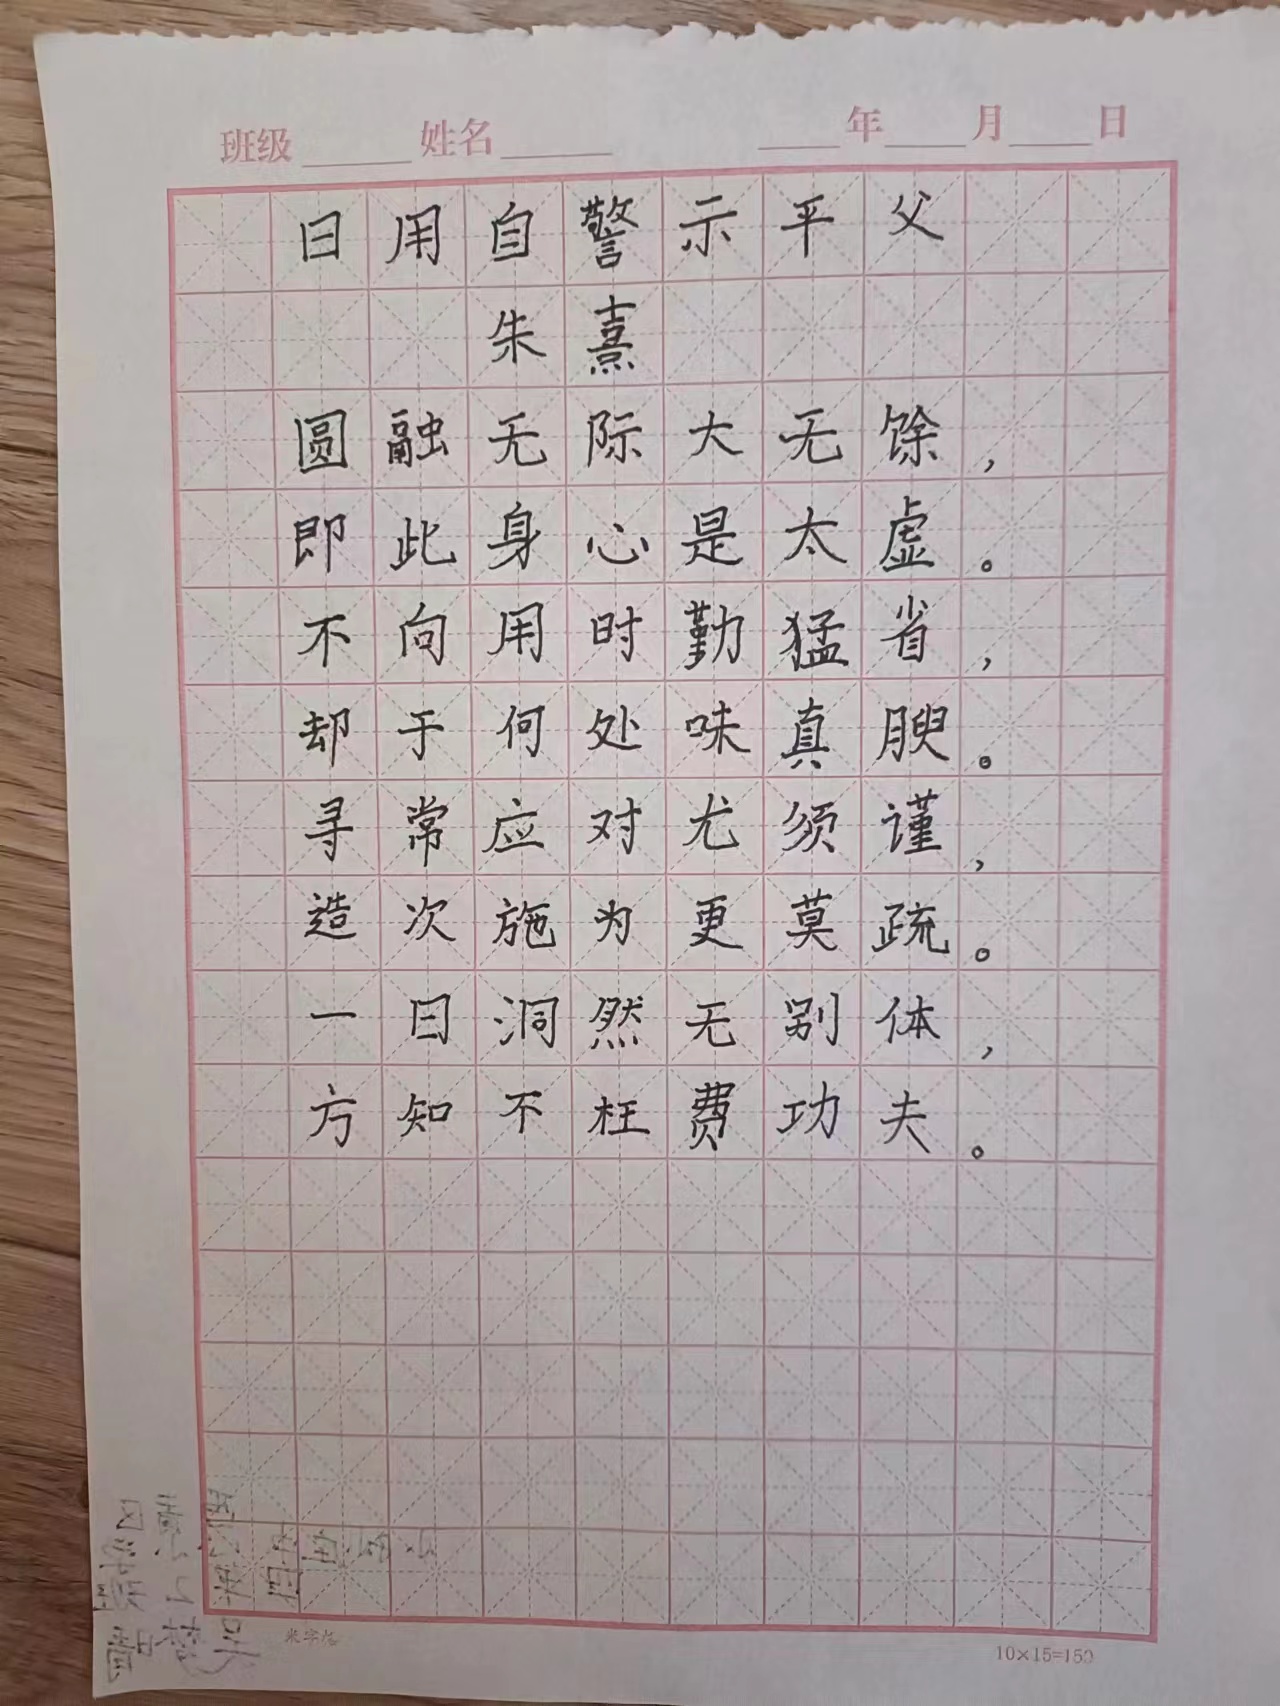 班级 姓名 年 月 日
日用自警示平父
朱熹
圆融无际大无馀，
即此身心是太虚。
不向用时勤猛省，
却于何处味真腴。
寻常应对尤须谨，
造次施为更莫疏。
一日洞然无别体，
方知不枉费功夫。
米字格
10×15=150